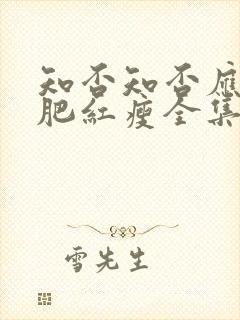 知否知否應
肥紅瘦全集
雪先生